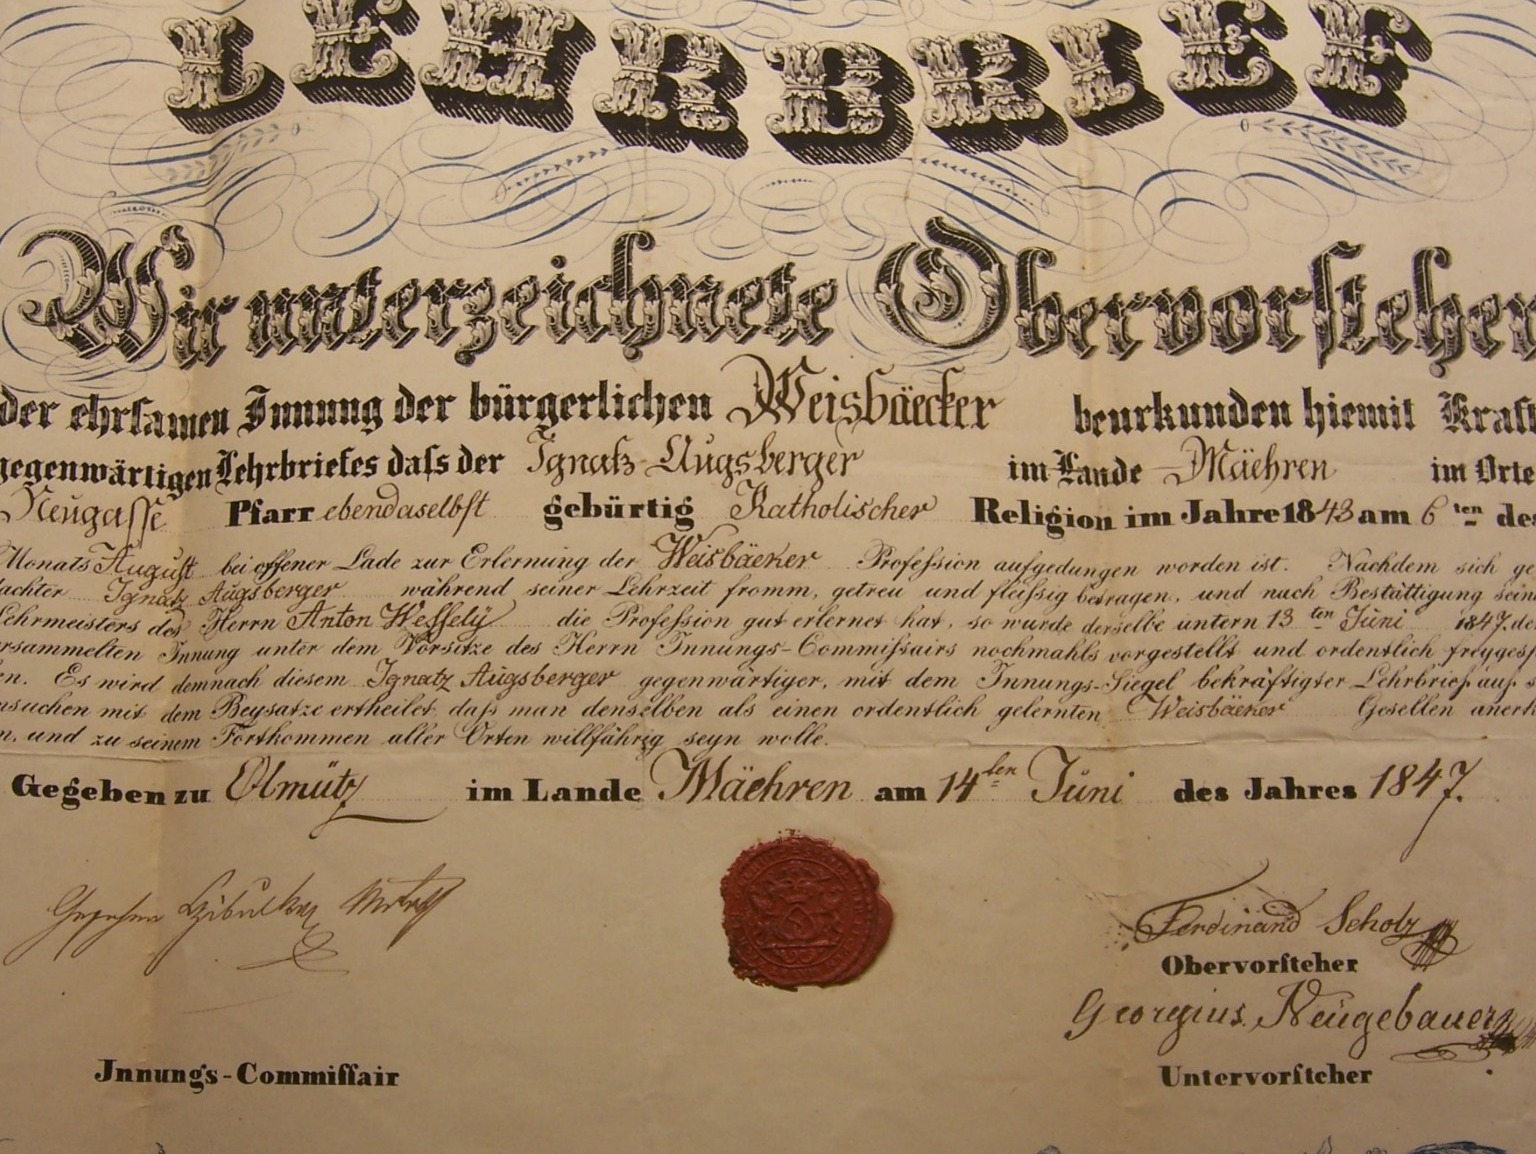 LEHRBRIEF
Wir unterzeichnete Obervorsteher
der ehrsamen Innung der bürgerlichen Weisbäecker beurkunden hiemit Kraft
gegenwärtigen Lehrbriefes daſs der Ignatz Augsberger im Lande Mäehren im Orte
Neugasse Pfarr ebendaselbst gebürtig Katholischer Religion im Jahre 1843 am 6ten des
Monats August bei offener Lade zur Erlernung der Weisbäcker Profession aufgedungen worden ist. Nachdem sich ge
dachter Ignatz Augsberger während seiner Lehrzeit fromm, getreu und fleiſsig betragen, und nach Bestättigung sein
Lehrmeisters des Herrn Anton Wesselÿ die Profession gut erlernet hat, so wurde derselbe untern 13ten Juni 1847. der
ersammelten Innung unter dem Vorsitze des Herrn Innungs-Commiſsairs nochmahls vorgestellt und ordentlich freygesp
en. Es wird demnach diesem Ignatz Augsberger gegenwärtiger, mit dem Innungs-Siegel bekräftigter Lehrbrief auf s
nsuchen mit dem Beysatze ertheilet, daſs man denselben als einen ordentlich gelernten Weisbäcker Gesellen anerk
n, und zu seinem Fortkommen aller Orten willfährig seyn wolle.
Gegeben zu Olmütz im Lande Mäehren am 14ten Juni des Jahres 1847.
Ferdinand Scholz
Obervorsteher
Georgius Neugebauer
Innungs-Commiſsair
Untervorsteher